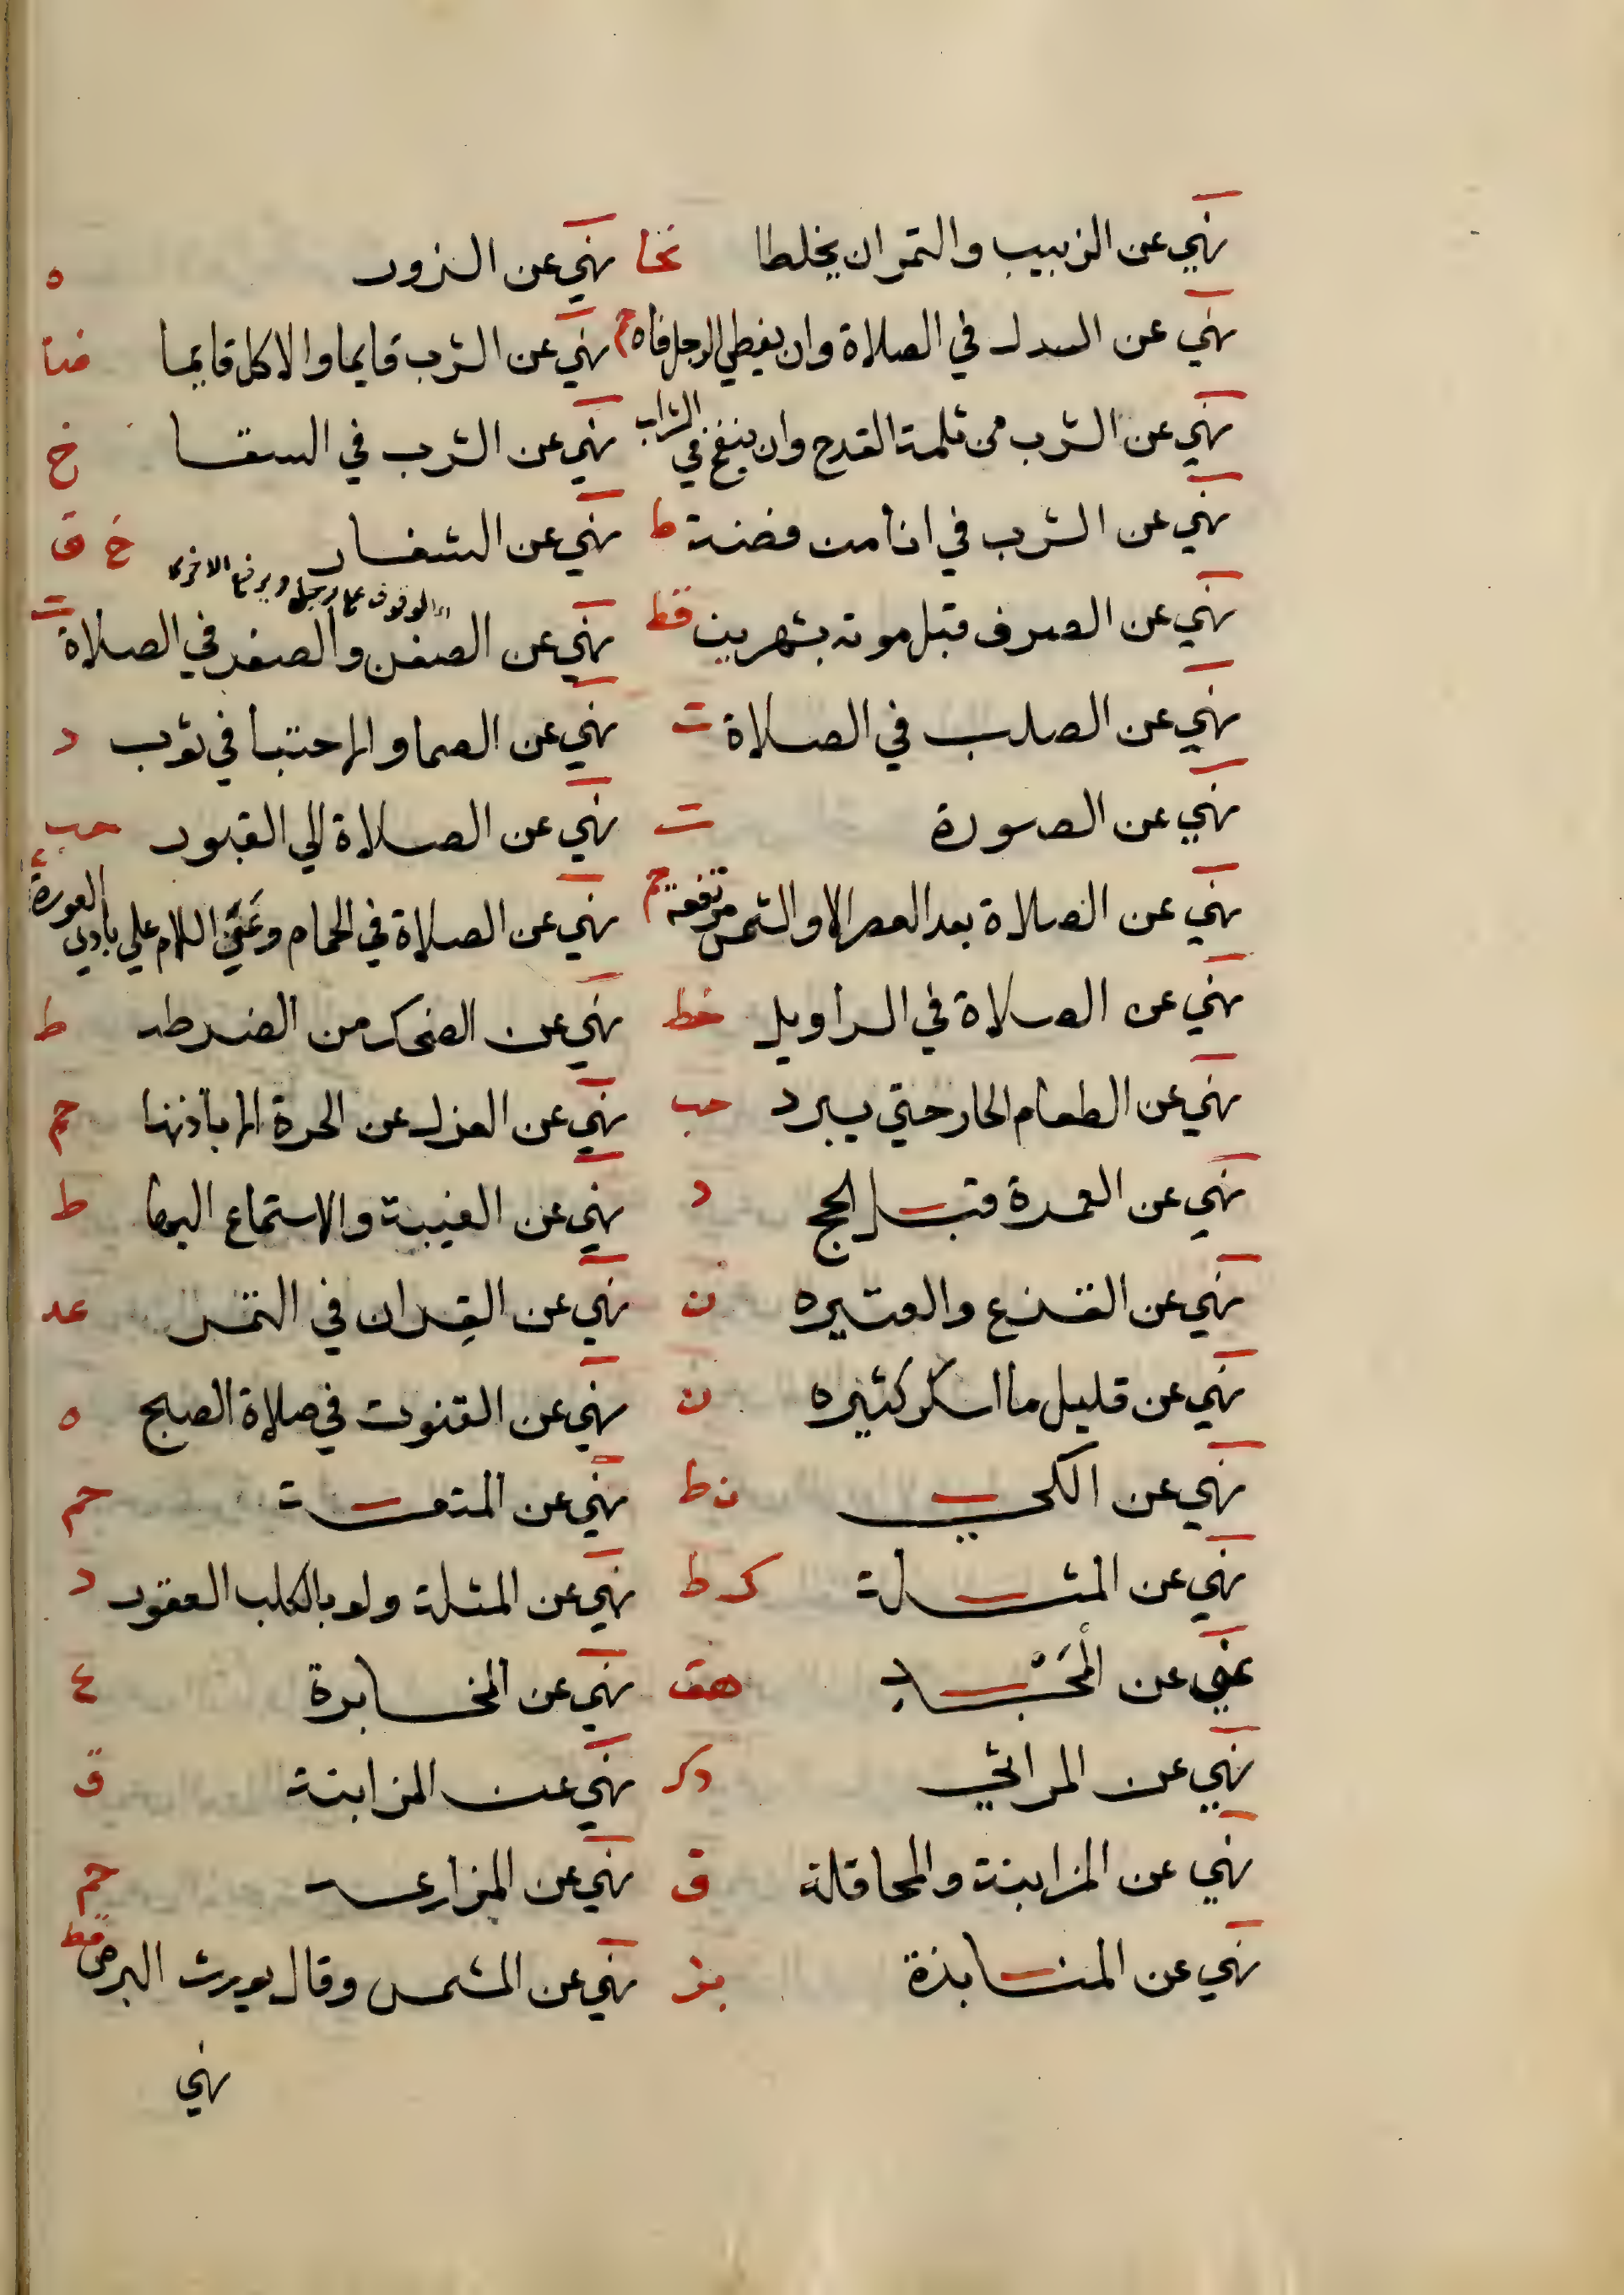 نهي عن الزبيب والتمر ان يخلطا نهي عن الزور ه
نهي عن السدل في الصلاة وان يغطي الرجل فاه حم نهي عن الشرب قايما والاكل قايما ضيا
نهي عن الشرب من ثلمة القدح وان ينفخ في الشراب نهي عن الشرب في السقا خ
نهي عن الشرب في انا من فضة ط نهي عن الشغار خ ق
نهي عن الصرف قبل موته بشهرين قط نهي عن الصفن والصفد في الصلاة ت
نهي عن الصلب في الصلاة ت نهي عن الصما والاحتبا في ثوب د
نهي عن الصورة ت نهي عن الصلاة الي القبور حب
نهي عن الصلاة بعد العصر الا والشمس مرتفعة حم نهي عن الصلاة في الحمام وعن السلام علي بادي العورة
نهي عن الصلاة في السراويل خط نهي عن الضحك من الضرطه ط
نهي عن الطعام الحار حتي يبرد حب نهي عن العزل عن الحرة الا باذنها حم
نهي عن العمرة قبل الحج د نهي عن الغيبة والاستماع اليها ط
نهي عن القزع والعتيره ن نهي عن القِران في التمر عد
نهي عن قليل ما اسكر كثيره ن نهي عن القنوت في صلاة الصبح ه
نهي عن الكي ت ط نهي عن المتعة حم
نهي عن المثلة ك ط نهي عن المثلة ولو بالكلب العقور د
نهي عن هق نهي عن المخابرة ع
نهي عن المراثي ه ك نهي عن المزابنة ق
نهي عن المزابنة والمحاقلة ق نهي عن المزارعه حم
نهي عن المنابذة بز نهي عن المشمس وقال يورث البرص قط
نهي